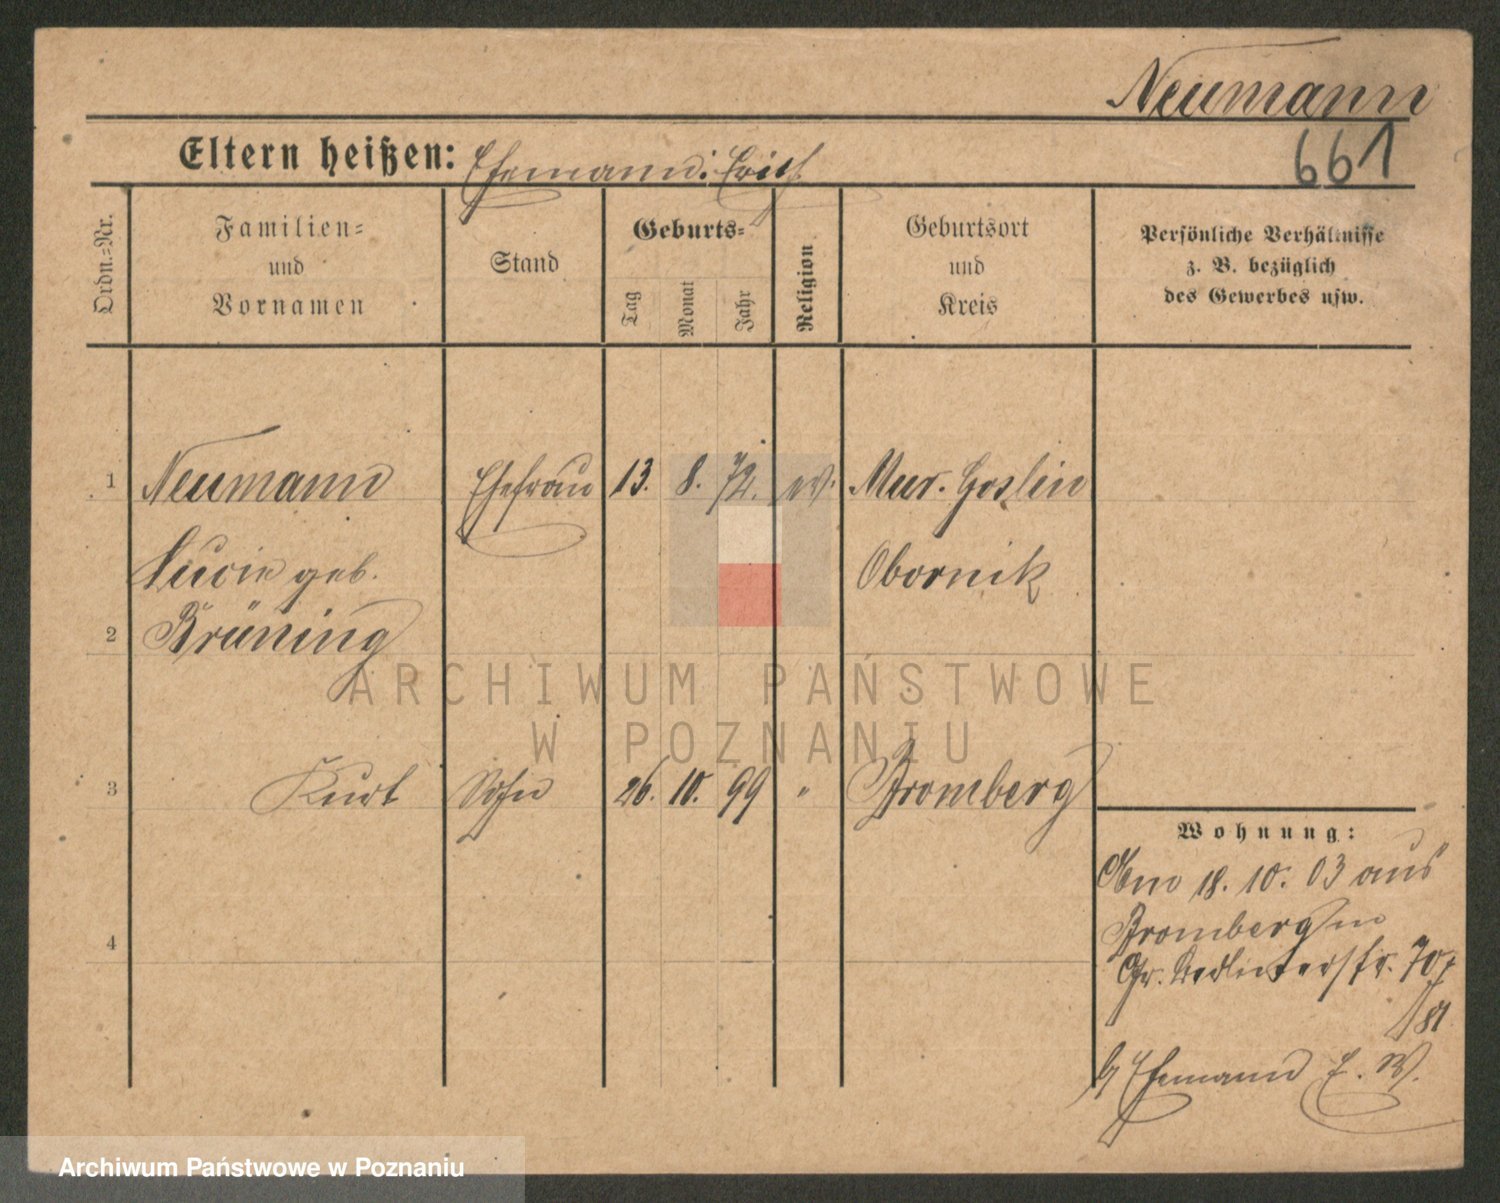 Neumann
661
Eltern heißen: Ehemann: Erich
Ordn.=Nr.
Familien=
und
Vornamen
Stand
Geburts=
Tag
Monat
Jahr
Religion
Geburtsort
und
Kreis
Persönliche Verhältnisse
z. B. bezüglich
des Gewerbes usw.
1 Neumann Ehefrau 13. 8. 72. ev. Mur. Goslin
Lucie geb. Obornik
2 Brüning
3 Kurt Sohn 26. 10. 99 " Bromberg
4
Wohnung:
Am 18. 10. 03 aus
Bromberg
Gr. Berlinerstr. 70
81
b/ Ehemann E. N.
ARCHIWUM PAŃSTWOWE
W POZNANIU
Archiwum Państwowe w Poznaniu